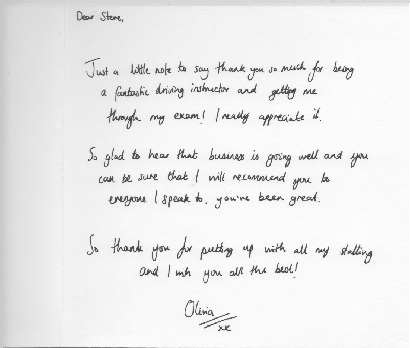 Dear Steve,
Just a little note to say thank you so much for being
a fantastic driving instructor and getting me
through my exam! I really appreciate it.
So glad to hear that business is going well and you
can be sure that I will recommend you to
everyone I speak to, you've been great.
So thank you for putting up with all my stalling
and I wish you all the best!
Olivia
xx